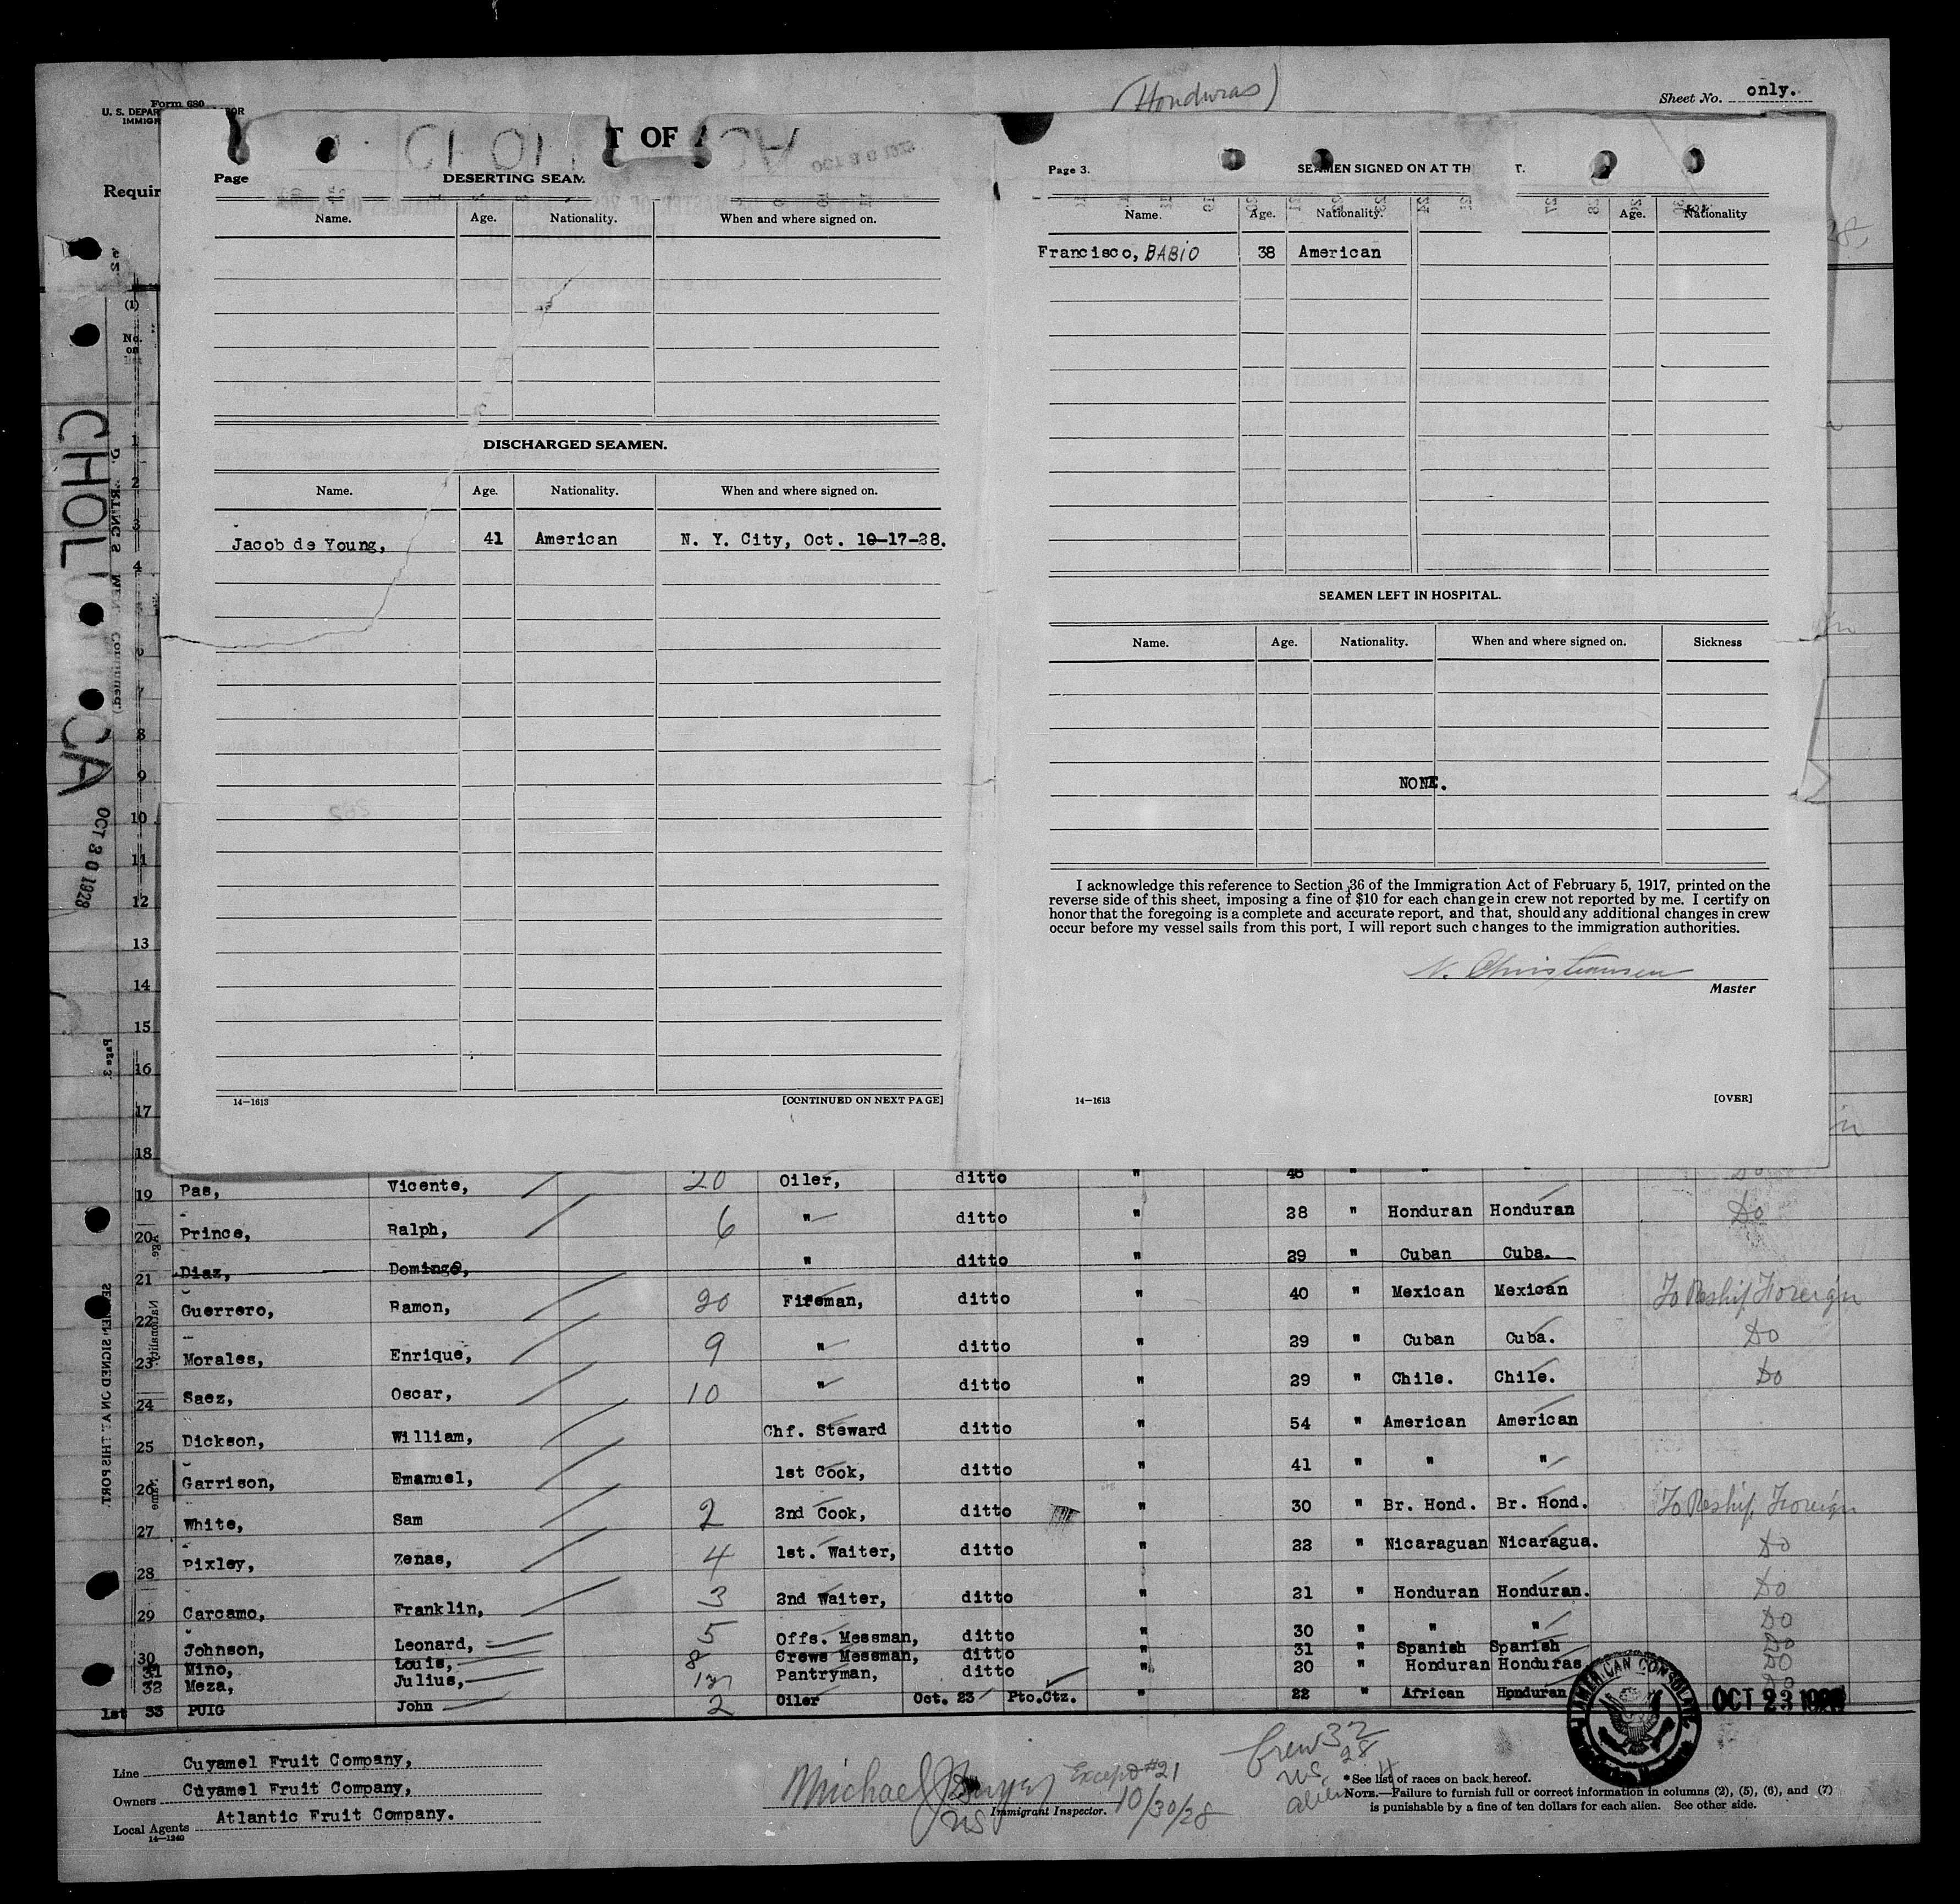 (Honduras)
Sheet No. only.
Form 680
U. S. DEPAR
IMMIG
T OF
Requir
Page
DESERTING SEAM
Name. Age. Nationality. When and where signed on.
DISCHARGED SEAMEN.
Name. Age. Nationality. When and where signed on.
Jacob de Young, 41 American N. Y. City, Oct. 10-17-28.
14—1613 [CONTINUED ON NEXT PAGE]
Page 3. SEAMEN SIGNED ON AT TH T.
Name. Age. Nationality. Age. Nationality
Francisco, BABIO 38 American
SEAMEN LEFT IN HOSPITAL.
Name. Age. Nationality. When and where signed on. Sickness
NONE.
I acknowledge this reference to Section 36 of the Immigration Act of February 5, 1917, printed on the
reverse side of this sheet, imposing a fine of $10 for each change in crew not reported by me. I certify on
honor that the foregoing is a complete and accurate report, and that, should any additional changes in crew
occur before my vessel sails from this port, I will report such changes to the immigration authorities.
N. Christiansen
Master
14—1613 [OVER]
CHOL CA
OCT 30 1928
(1)
No.
on
1
2
3
4
7
8
9
10
11
12
13
14
15
16
17
18
19 Pas, Vicente, 20 Oiler, ditto " 46 " "
20 Prince, Ralph, 6 " ditto " 28 " Honduran Honduran Do
21 Diaz, Domingo, " ditto " 29 " Cuban Cuba.
22 Guerrero, Ramon, 20 Fireman, ditto " 40 " Mexican Mexican To Reship Foreign
23 Morales, Enrique, 9 " ditto " 29 " Cuban Cuba. Do
24 Saez, Oscar, 10 " ditto " 29 " Chile. Chile. Do
25 Dickson, William, Chf. Steward ditto " 54 " American American
26 Garrison, Emanuel, 1st Cook, ditto " 41 " " "
27 White, Sam 2 2nd Cook, ditto " 30 " Br. Hond. Br. Hond. To Reship Foreign
28 Pixley, Zenas, 4 1st. Waiter, ditto " 22 " Nicaraguan Nicaragua. Do
29 Carcamo, Franklin, 3 2nd Waiter, ditto " 21 " Honduran Honduran. Do
30 Johnson, Leonard, 5 Offs. Messman, ditto " 30 " " " Do
31 Mino, Louis, 8 Crews Messman, ditto " 31 " Spanish Spanish Do
32 Meza, Julius, Pantryman, ditto " 20 Honduran Honduras Do
1st 33 PUIG John 2 Oiler Oct. 23 Pto.Ctz. " 22 " African Honduran
AMERICAN CONSULATE
OCT 23 1928
Line Cuyamel Fruit Company,
Owners Cuyamel Fruit Company,
Local Agents Atlantic Fruit Company.
14—1240
Michael
Except #21
Immigrant Inspector. 10/30/28
Crew 32
28
U.S. 4
alien
* See list of races on back hereof.
NOTE.—Failure to furnish full or correct information in columns (2), (5), (6), and (7)
is punishable by a fine of ten dollars for each alien. See other side.